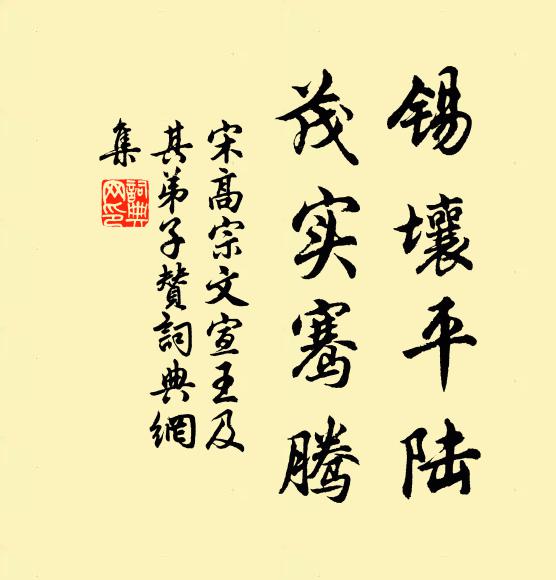 锡壤平陆
茂实骞腾
宋高宗文宣王及
其弟子赞詞典網
集
詞典
网印